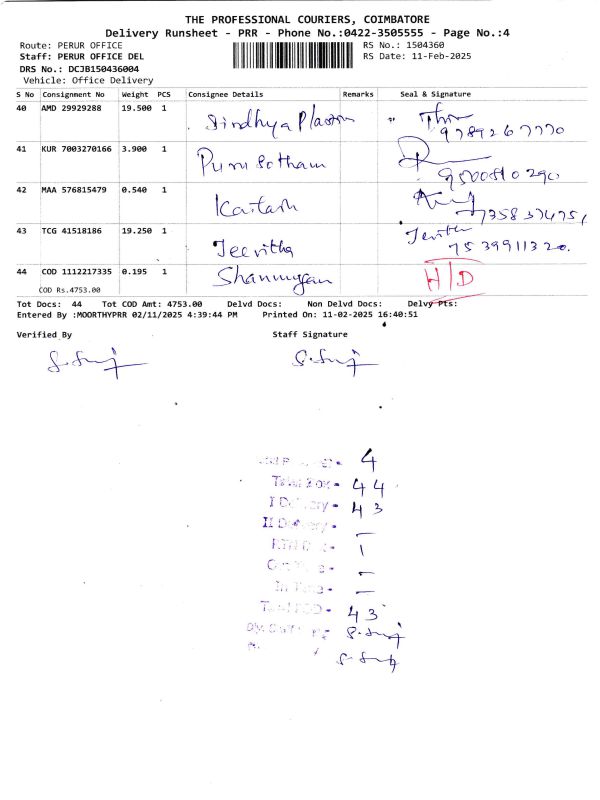 THE PROFESSIONAL COURIERS, COIMBATORE
Delivery Runsheet - PRR - Phone No.:0422-3505555 - Page No.:4
Route: PERUR OFFICE RS No.: 1504360
Staff: PERUR OFFICE DEL RS Date: 11-Feb-2025
DRS No.: DCJB150436004
Vehicle: Office Delivery
S No Consignment No Weight PCS Consignee Details Remarks Seal & Signature
40 AMD 29929288 19.500 1
Sindhya Plason 9789267770
41 KUR 7003270166 3.900 1
Purusotham 9500810290
42 MAA 576815479 0.540 1
Kailash
43 TCG 41518186 19.250 1
Jeevitha 7539911320.
44 COD 1112217335 0.195 1 Shanmugan H/D
COD Rs.4753.00
Tot Docs: 44 Tot COD Amt: 4753.00 Delvd Docs: Non Delvd Docs: Delvy Pts:
Entered By :MOORTHYPRR 02/11/2025 4:39:44 PM Printed On: 11-02-2025 16:40:51
Verified By Staff Signature
4
Total Box - 44
I Delivery - 43
II Delivery - —
1
—
In Time - —
43